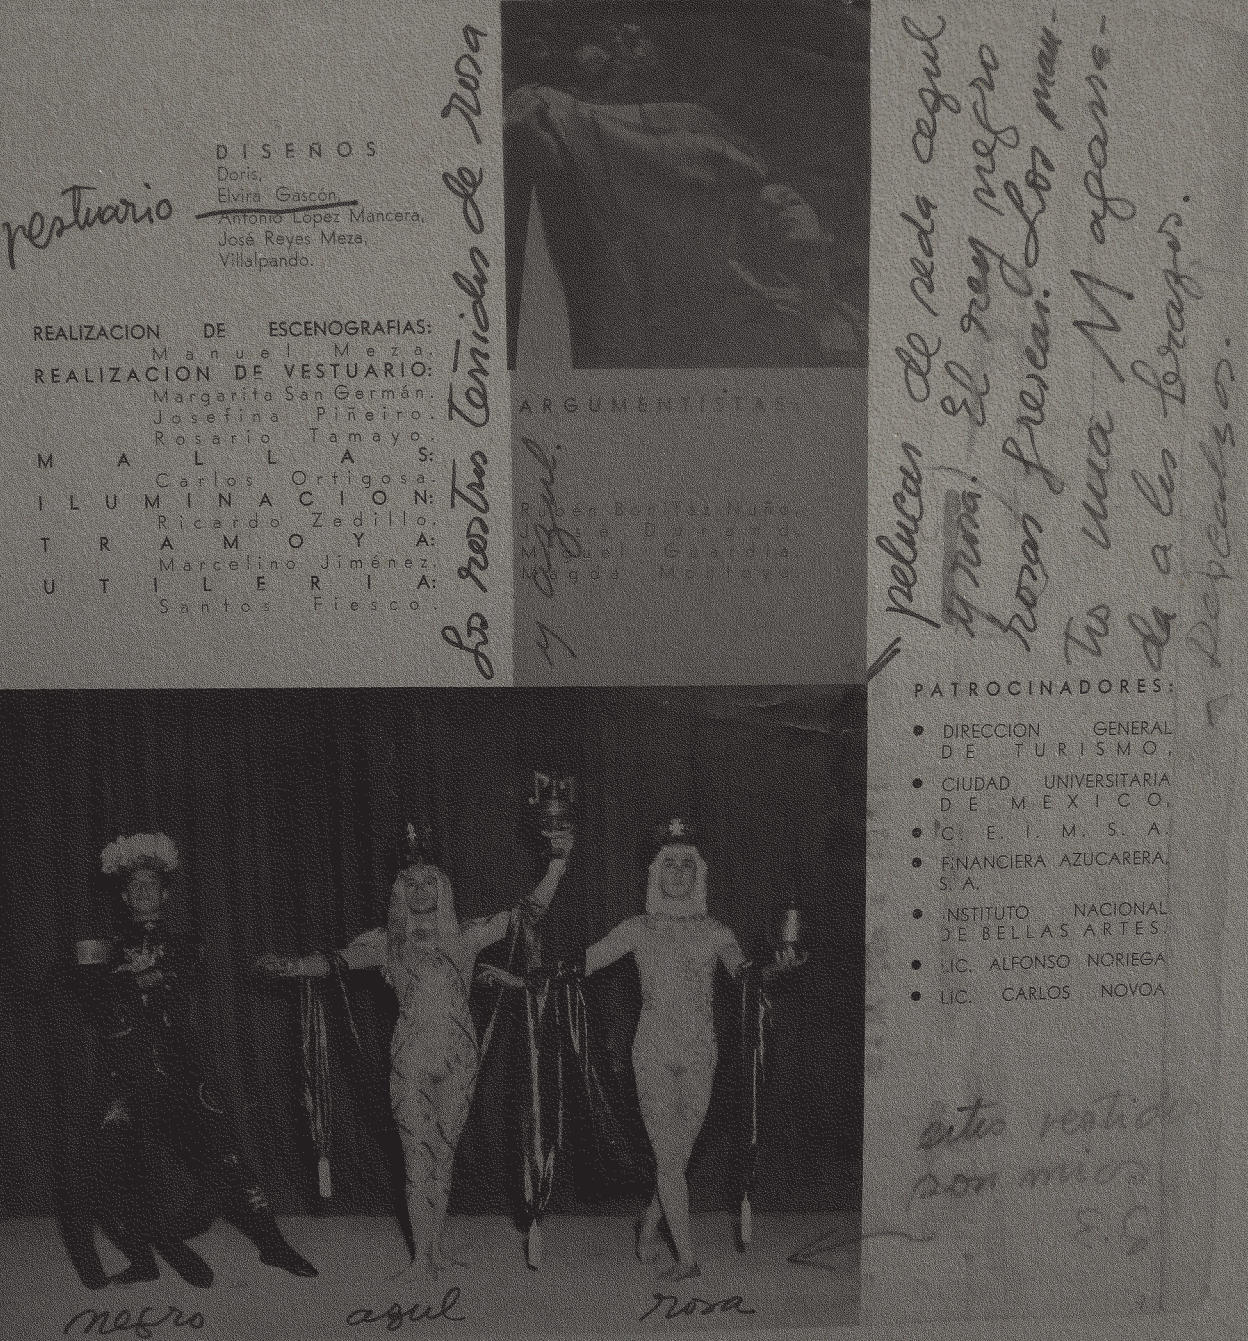 DISEÑOS
Doris,
Elvira Gascón,
Antonio López Mancera,
José Reyes Meza,
Villalpando.
vestuario
REALIZACION DE ESCENOGRAFIAS:
Manuel Meza.
REALIZACION DE VESTUARIO:
Margarita San Germán.
Josefina Piñeiro.
Rosario Tamayo.
MALLAS:
Carlos Ortigosa.
ILUMINACION:
Ricardo Zedillo.
TRAMOYA:
Marcelino Jiménez.
UTILERIA:
Santos Fiesco.
Los rostros teñidos de rosa
y azul.
ARGUMENTISTAS:
Rubén Bonifaz Nuño,
José Durand,
Miguel Guardia,
Magda Montoya.
pelucas de seda azul
y rosa. El rey negro
rosas frescas. Los man-
tos una M
da a los brazos.
Descalzos.
PATROCINADORES:
DIRECCION GENERAL
DE TURISMO,
CIUDAD UNIVERSITARIA
DE MEXICO,
C. E. I. M. S. A.
FINANCIERA AZUCARERA,
S. A.
INSTITUTO NACIONAL
DE BELLAS ARTES.
LIC. ALFONSO NORIEGA
LIC. CARLOS NOVOA
estos vestidos
son mios
E.G
negro
azul
rosa